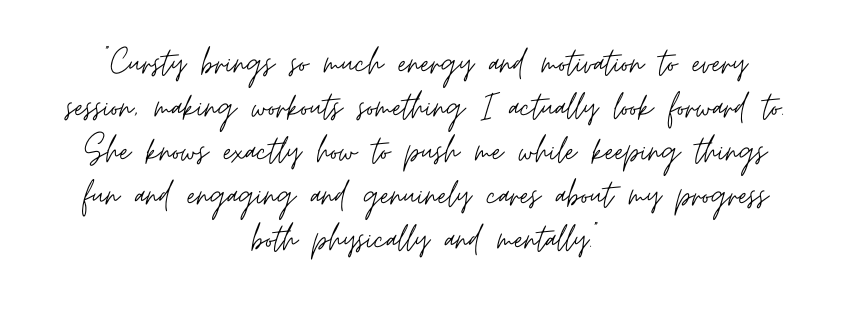 "Cursty brings so much energy and motivation to every
session, making workouts something I actually look forward to.
She knows exactly how to push me while keeping things
fun and engaging and genuinely cares about my progress
both physically and mentally."